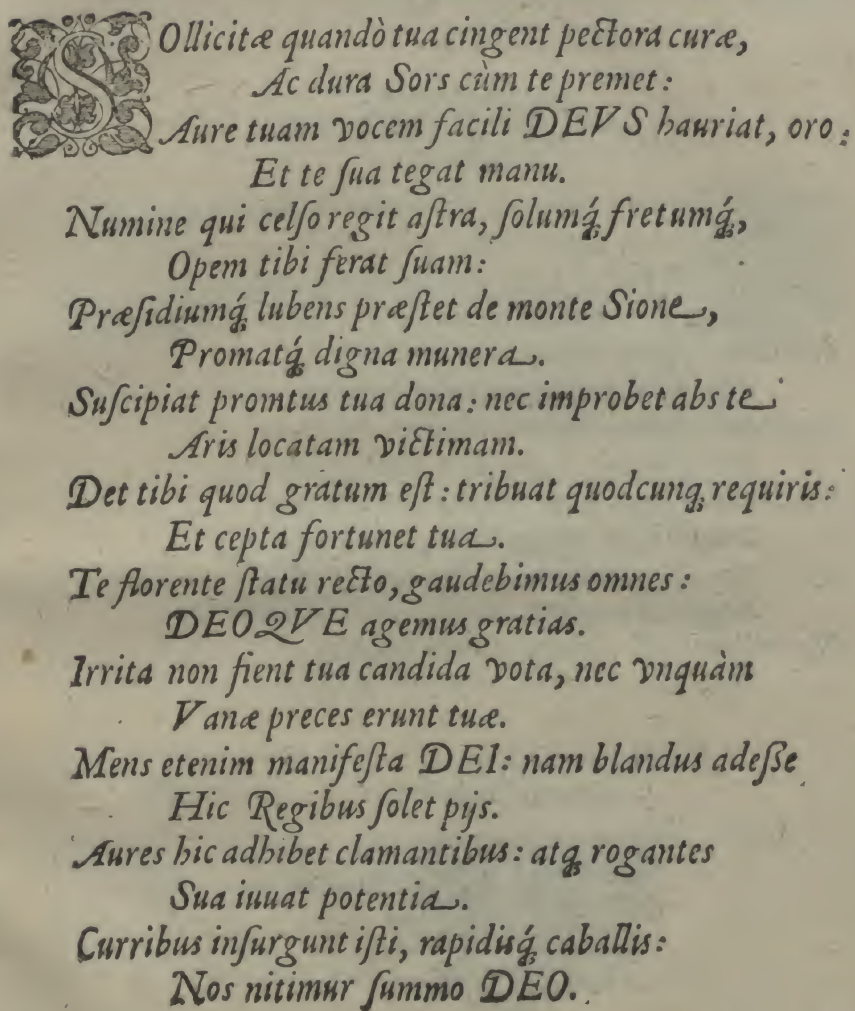 SOllicitæ quandò tua cingent pectora curæ,
Ac dura Sors cùm te premet:
Aure tuam vocem facili DEVS hauriat, oro:
Et te ſua tegat manu.
Numine qui celſo regit aſtra, ſolumq́; fretumq́;,
Opem tibi ferat ſuam:
Præſidiumq́; lubens præſtet de monte Sione,
Promatq́; digna munera.
Suſcipiat promtus tua dona: nec improbet abs te
Aris locatam victimam.
Det tibi quod gratum eſt: tribuat quodcunq; requiris:
Et cepta fortunet tua.
Te florente ſtatu recto, gaudebimus omnes:
DEOQVE agemus gratias.
Irrita non fient tua candida vota, nec vnquàm
Vanæ preces erunt tuæ.
Mens etenim manifeſta DEI: nam blandus adeſſe
Hic Regibus ſolet pijs.
Aures hic adhibet clamantibus: atq; rogantes
Sua iuuat potentia.
Curribus inſurgunt iſti, rapidisq́; caballis:
Nos nitimur ſummo DEO.